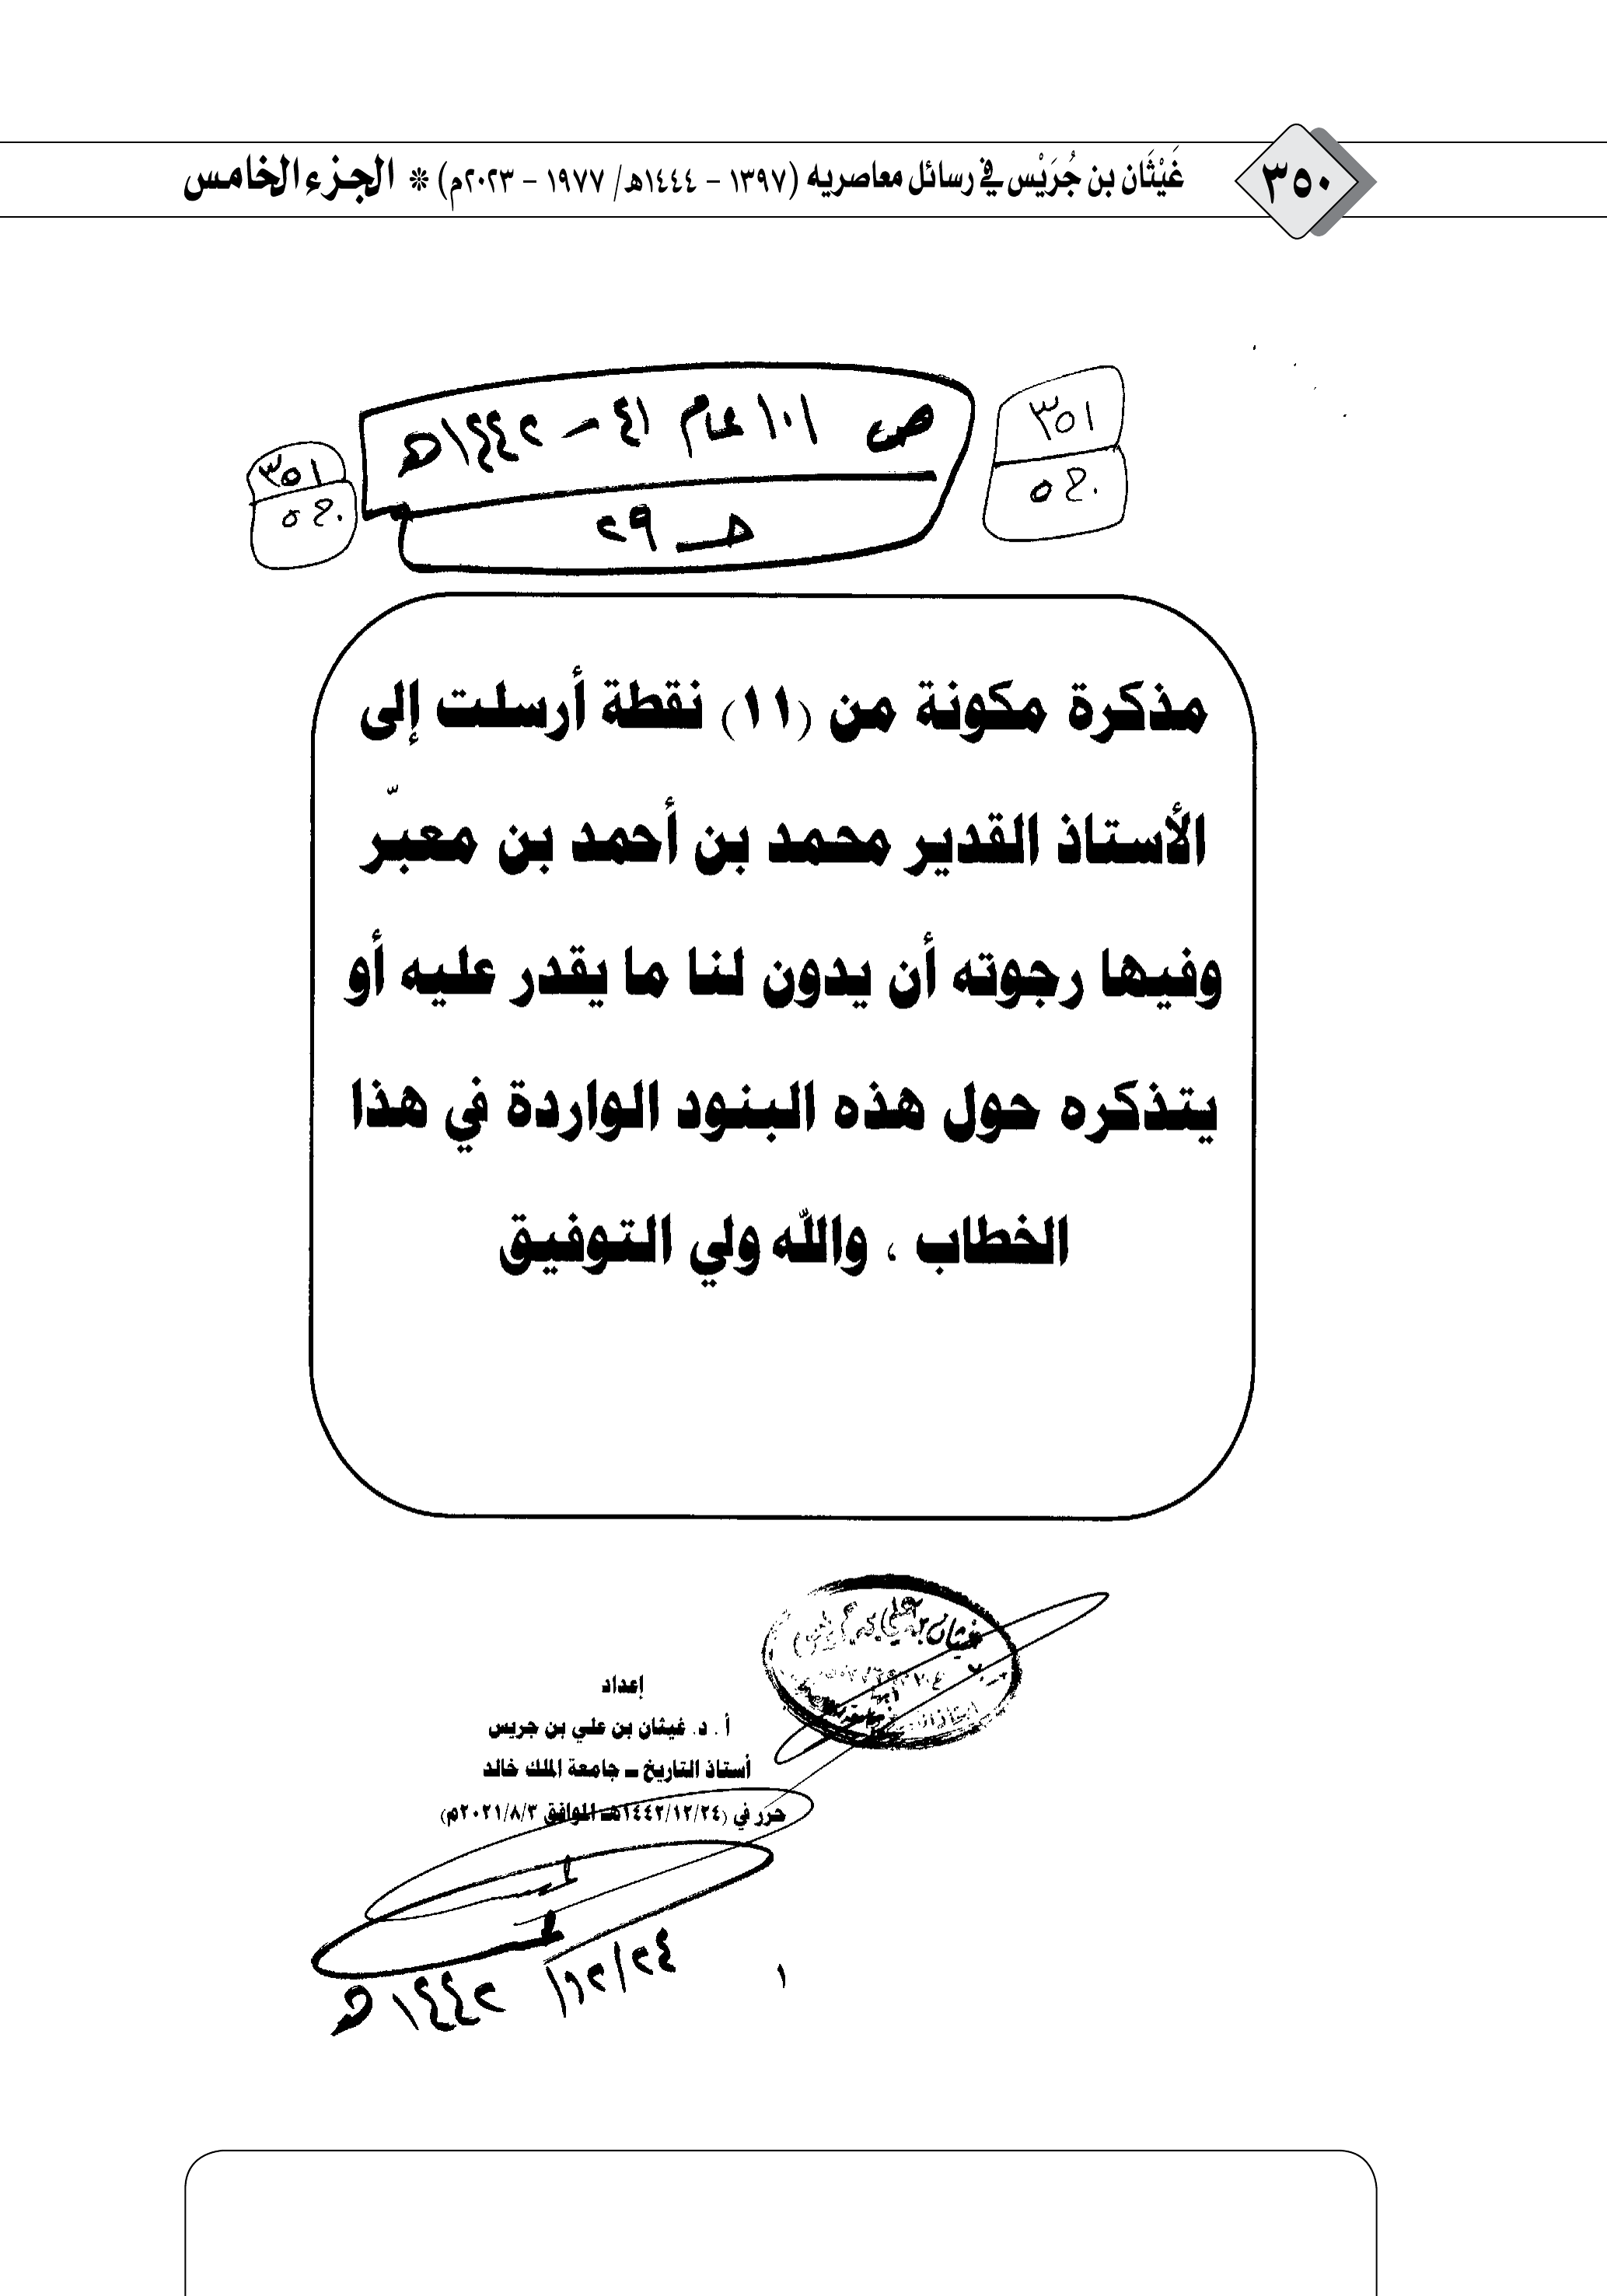 ٣٥٠
غَيْثَان بن جُرَيْس في رسائل معاصريه (١٣٩٧ - ١٤٤٤هـ/ ١٩٧٧ - ٢٠٢٣م) * الجزء الخامس
ص ١٠١ عام ٤١ – ١٤٤٢هـ
٣٥١
٥٢٠
٣٥١
٥٢٠
حـ ٢٩
مذكرة مكونة من (١١) نقطة أرسلت إلى
الأستاذ القدير محمد بن أحمد بن معبّر
وفيها رجوته أن يدون لنا ما يقدر عليه أو
يتذكره حول هذه البنود الواردة في هذا
الخطاب ، والله ولي التوفيق
غيثان بن علي بن جريس
إعداد
أ . د. غيثان بن علي بن جريس
أستاذ التاريخ ــ جامعة الملك خالد
حرر في (١٤٤٢/١٢/٢٤هـ الموافق ٢٠٢١/٨/٣م)
١٤٤٢/١٢/٢٤هـ
١